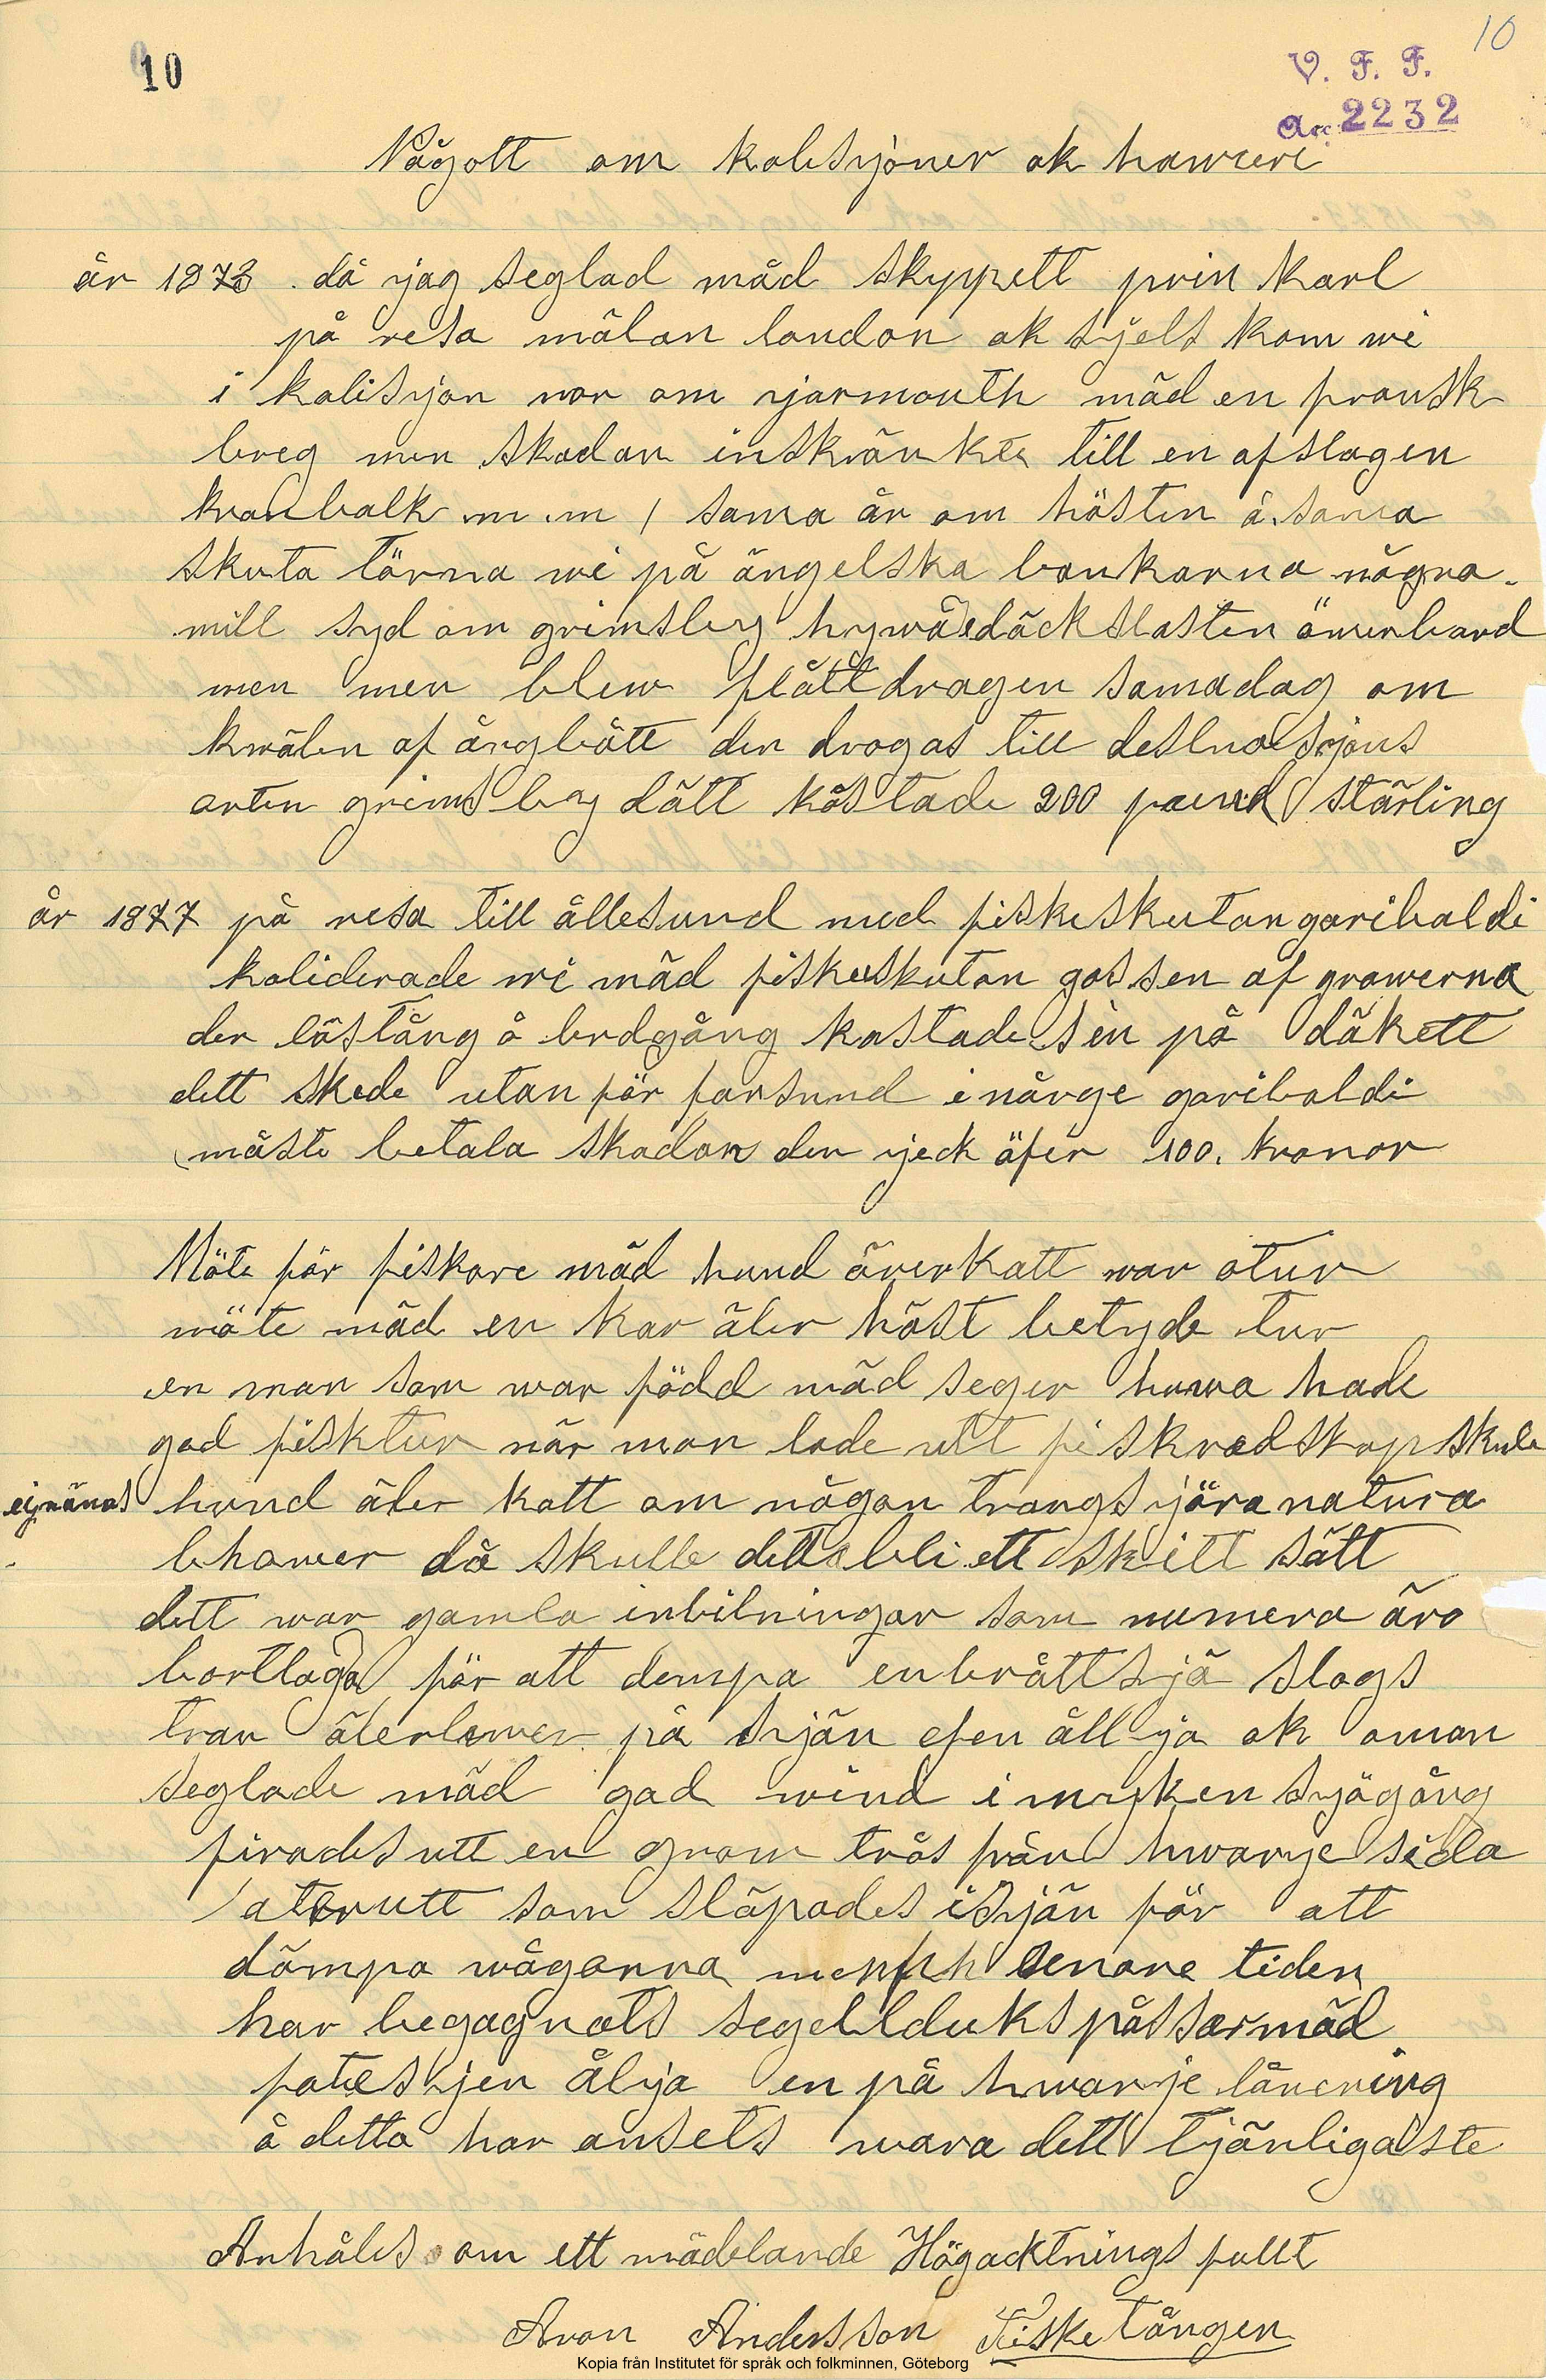 10
10
V. F. F.
Acc. 2232
Någott om kolisjoner ok hawreri
år 1873 då jag seglad mäd skyppett prin Karl
på resa mälan london ok sjels kom wi
i kolisjon nor om yarmouth mäd en fransk
breg men skadan inskränkte till en afslagen
kranbalk m.m / sama år om hösten å sama
skuta törna wi på ängelska bankarna några
mill syd om grimsby hywa däckslasten öwerbord
men men blew flått dragen samadag om
kwälen af ångbått den drogas till
orten grimsby dätt kåstade 200 pund stärling
år 1877 på resa till ållesund med fiskeskutan garibaldi
koliderade wi mäd fiskeskutan gossen af grawerna
der löstång å brdgång kastades in på däkett
dett skede utan för farsund i nårge garibaldi
måste betala skadan den gjeck äfer 100. kronor
Möte för fiskare mäd hund äver katt war otur
möte mäd en kar äler häst betyde tur
en man som war född mäd seger huwa hade
god fisktur när man lade utt fiskredskap skule
ej nänas hund äler katt om någon trangs jöra natura
bhower då skulle dett bli ett skitt sätt
dett war gamla inbilningar som numera äro
bortlagda för att dempa en bråttsjö slogs
tran äler lewer på sjön efen ållja ok om man
seglade mäd god wind i myken sjögång
firades utt en grow trås från hwarje sida
akterutt som släpades i sjön för att
dämpa wågorna men på senare tiden
har begagnats segellduks påssar mäd
fotesjen ålja en på hwarje låring
å detta har ansets wara dett tjänligaste
Anhåles om ett mädelande Högacktnings fullt
Aron Andersson Fisketången
Kopia från Institutet för språk och folkminnen, Göteborg